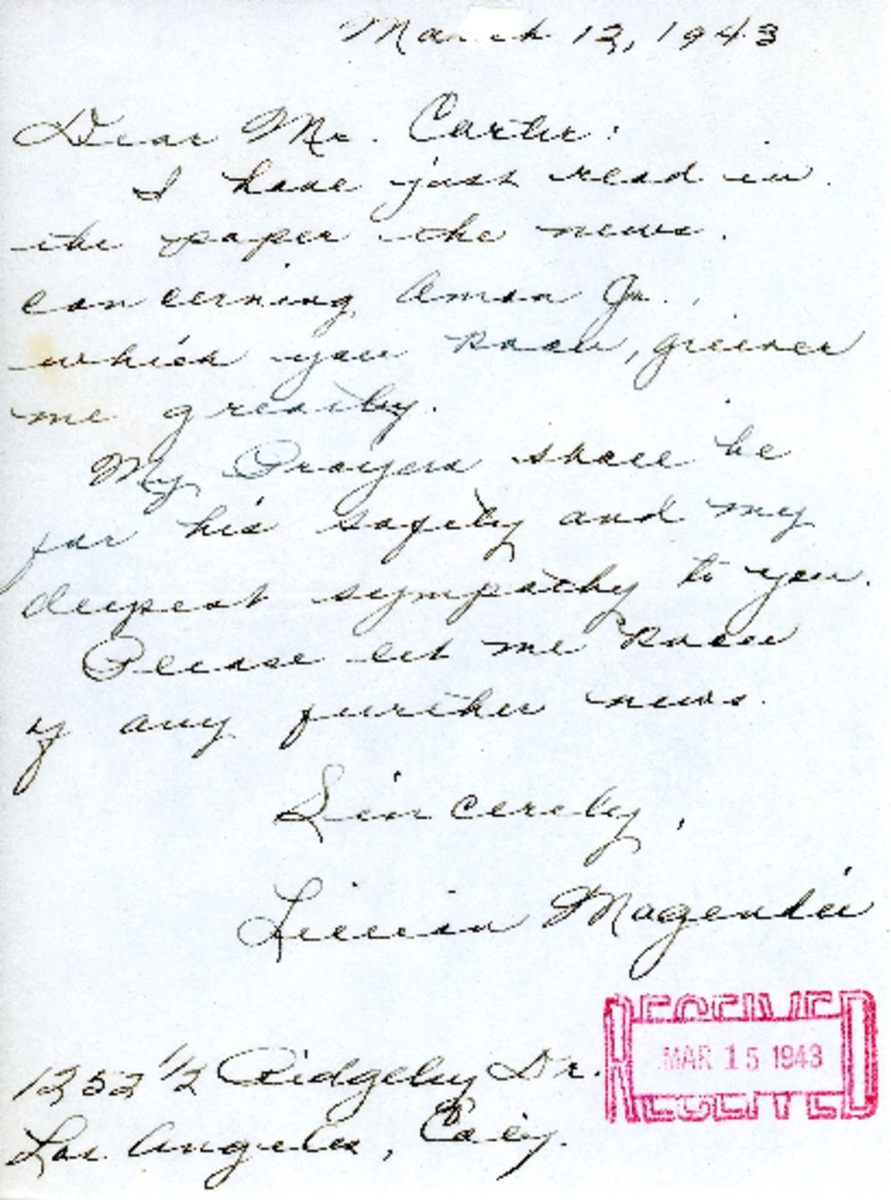 March 12, 1943
Dear Mr. Carter:
I have just read in
the paper the news
concerning Amon Jr.,
which you know, grieves
me greatly.
My Prayers shall be
for his safety and my
deepest sympathy to you.
Please let me know
if any further news.
Sincerely,
Lillian Magendie
1252 1/2 Ridgeley Dr.
Los Angeles, Calif.
RECEIVED
MAR 15 1943
RECEIVED